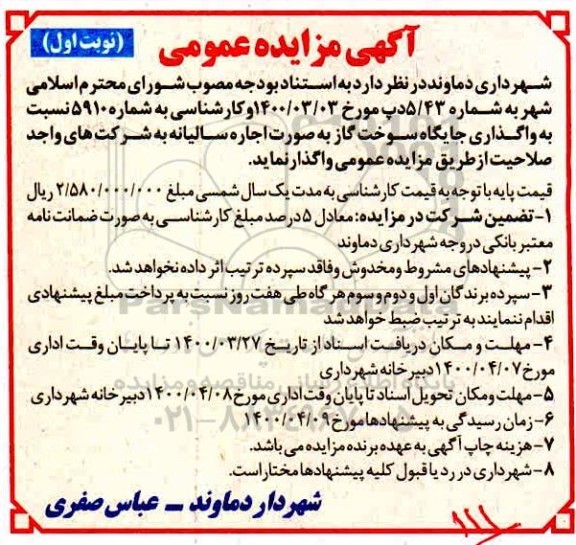 آگهی مزایده عمومی
(نوبت اول)
شهرداری دماوند در نظر دارد به استناد بودجه مصوب شورای محترم اسلامی
شهر به شماره ۵/۴۳دپ مورخ ۱۴۰۰/۰۳/۰۳ و کارشناسی به شماره ۵۹۱۰ نسبت
به واگذاری جایگاه سوخت گاز به صورت اجاره سالیانه به شرکت های واجد
صلاحیت از طریق مزایده عمومی واگذار نماید.
قیمت پایه با توجه به قیمت کارشناسی به مدت یک سال شمسی مبلغ ۲/۵۸۰/۰۰۰/۰۰۰ ریال
۱- تضمین شرکت در مزایده: معادل ۵ درصد مبلغ کارشناسی به صورت ضمانت نامه
معتبر بانکی در وجه شهرداری دماوند
۲- پیشنهادهای مشروط و مخدوش و فاقد سپرده ترتیب اثر داده نخواهد شد.
۳- سپرده برندگان اول و دوم و سوم هر گاه طی هفت روز نسبت به پرداخت مبلغ پیشنهادی
اقدام ننمایند به ترتیب ضبط خواهد شد
۴- مهلت و مکان دریافت اسناد از تاریخ ۱۴۰۰/۰۳/۲۷ تا پایان وقت اداری
مورخ ۱۴۰۰/۰۴/۰۷ دبیرخانه شهرداری
۵- مهلت ومکان تحویل اسناد تا پایان وقت اداری مورخ ۱۴۰۰/۰۴/۰۸ دبیرخانه شهرداری
۶- زمان رسیدگی به پیشنهادها مورخ ۱۴۰۰/۰۴/۰۹
۷- هزینه چاپ آگهی به عهده برنده مزایده می باشد.
۸- شهرداری در رد یا قبول کلیه پیشنهادها مختار است.
شهردار دماوند – عباس صفری
ParsNamadData
پایگاه اطلاع رسانی مناقصه و مزایده